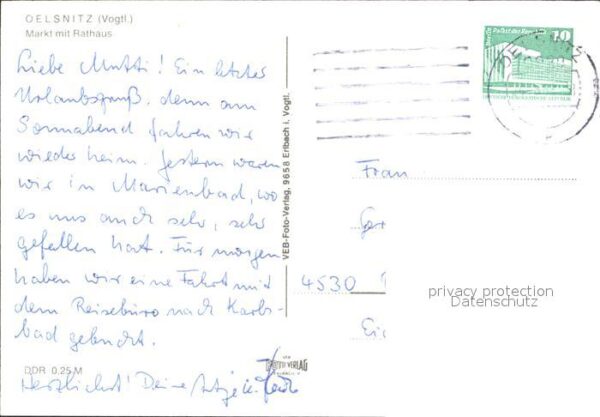 OELSNITZ (Vogtl.)
Markt mit Rathaus
Liebe Mutti! Ein letzter
Urlaubsgruß, denn am
Sonnabend fahren wir
wieder heim. Gestern waren
wir in Marienbad, wo
es uns auch sehr, sehr
gefallen hat. Für morgen
haben wir eine Fahrt mit
dem Reisebüro nach Karls-
bad gebucht.
Herzlichst! Deine
DDR 0.25 M
VEB-Foto-Verlag, 9658 Erlbach i. Vogtl.
FOTO VERLAG
10
Frau
4530
privacy protection
Datenschutz